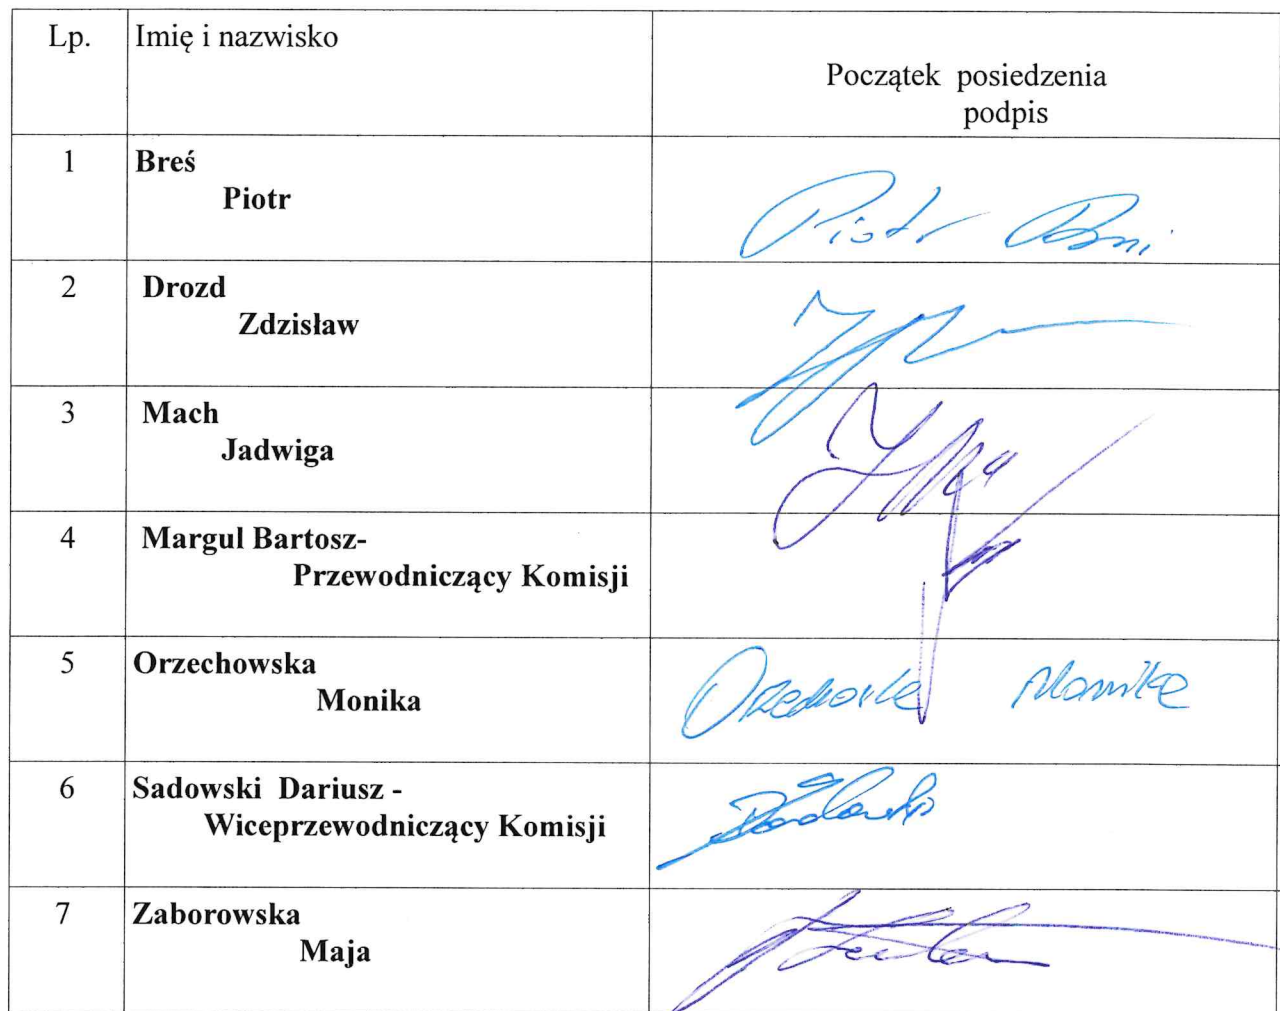 Lp.
Imię i nazwisko
Początek posiedzenia
podpis
1
Breś
Piotr
Piotr
2
Drozd
Zdzisław
3
Mach
Jadwiga
4
Margul Bartosz-
Przewodniczący Komisji
5
Orzechowska
Monika
6
Sadowski Dariusz -
Wiceprzewodniczący Komisji
7
Zaborowska
Maja